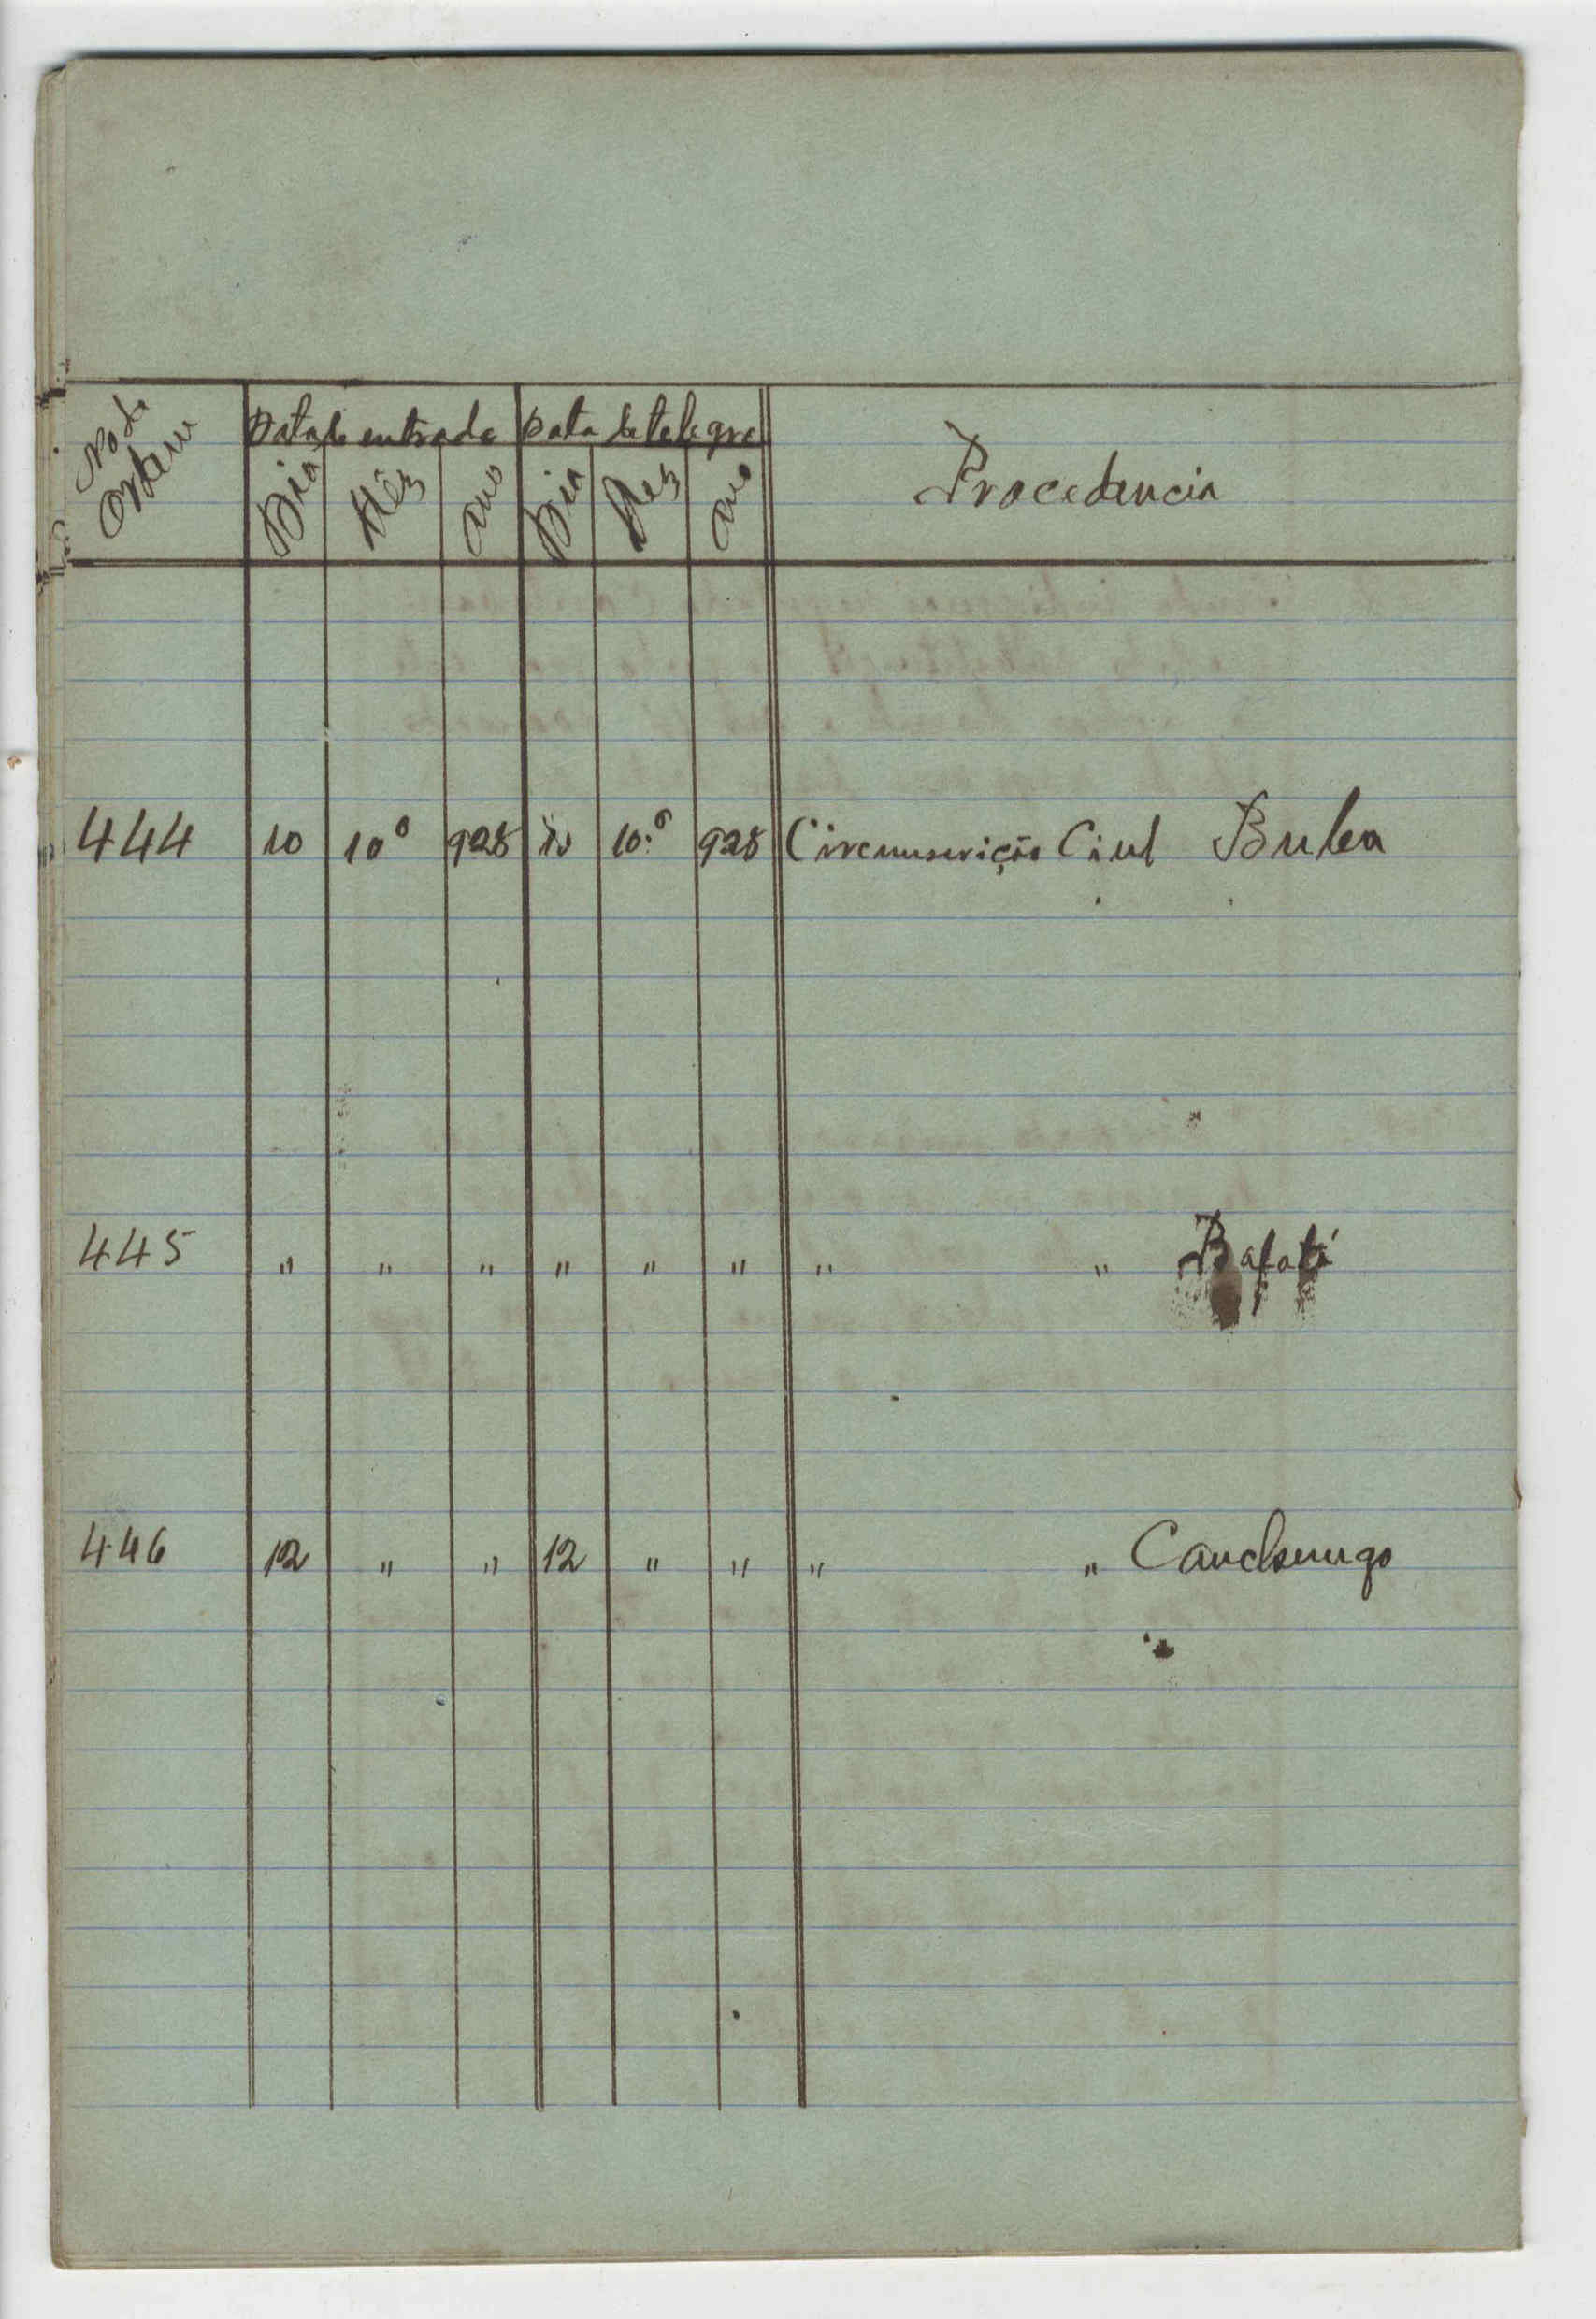 No de Ordem Data de entrada Data de telegra Procedencia
Dia Mês Ano Dia Mez Ano
444 10 10º 928 10 10.º 928 Circunscrição Civil Buba
445 " " " " " " " " Bafatá
446 12 " " 12 " " " " Canchungo